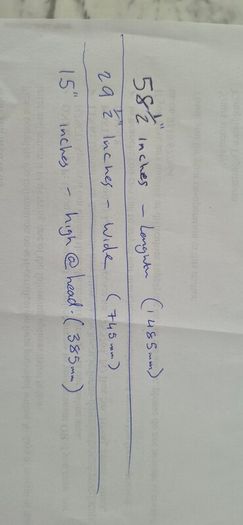 58 1/2" inches - Longwth (1485mm)
29 1/2" Inches - Wide (745mm)
15" inches - high @ head. (385mm)